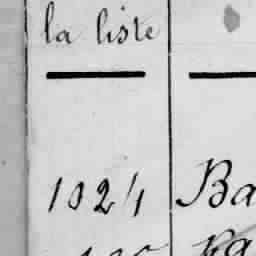 la liste
1024 Ba